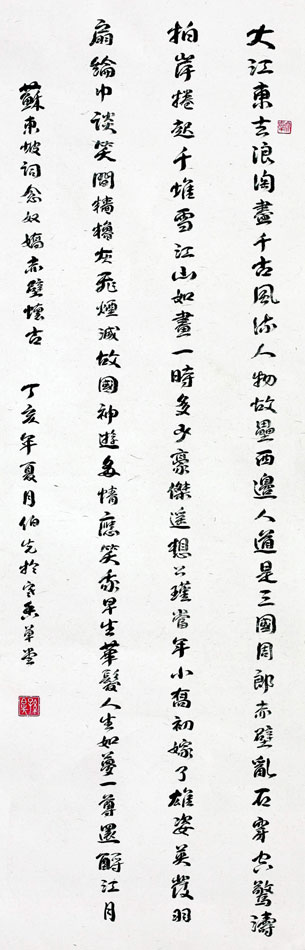 大江東去浪淘盡千古風流人物故壘西邊人道是三國周郎赤壁亂石穿空驚濤
拍岸捲起千堆雪江山如畫一時多少豪傑遙想公瑾當年小喬初嫁了雄姿英發羽
扇綸巾談笑間檣櫓灰飛煙滅故國神遊多情應笑我早生華髮人生如夢一尊還酹江月
蘇東坡詞念奴嬌赤壁懷古 丁亥年夏月伯先於草堂